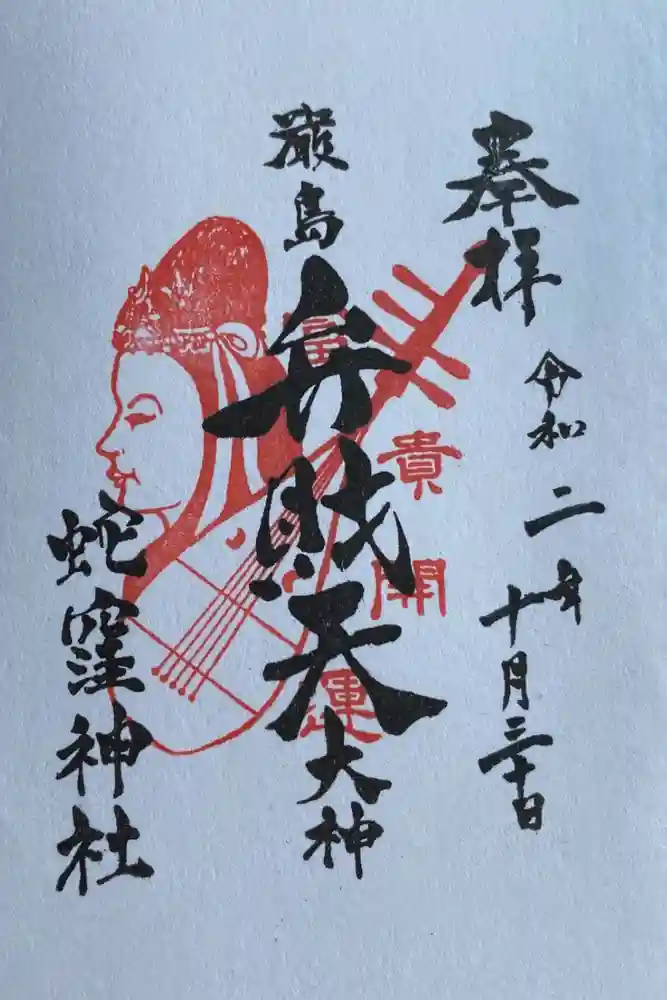 奉拝
令和二年
十月三十日
厳島
弁財天
大神
富貴開運
蛇窪神社